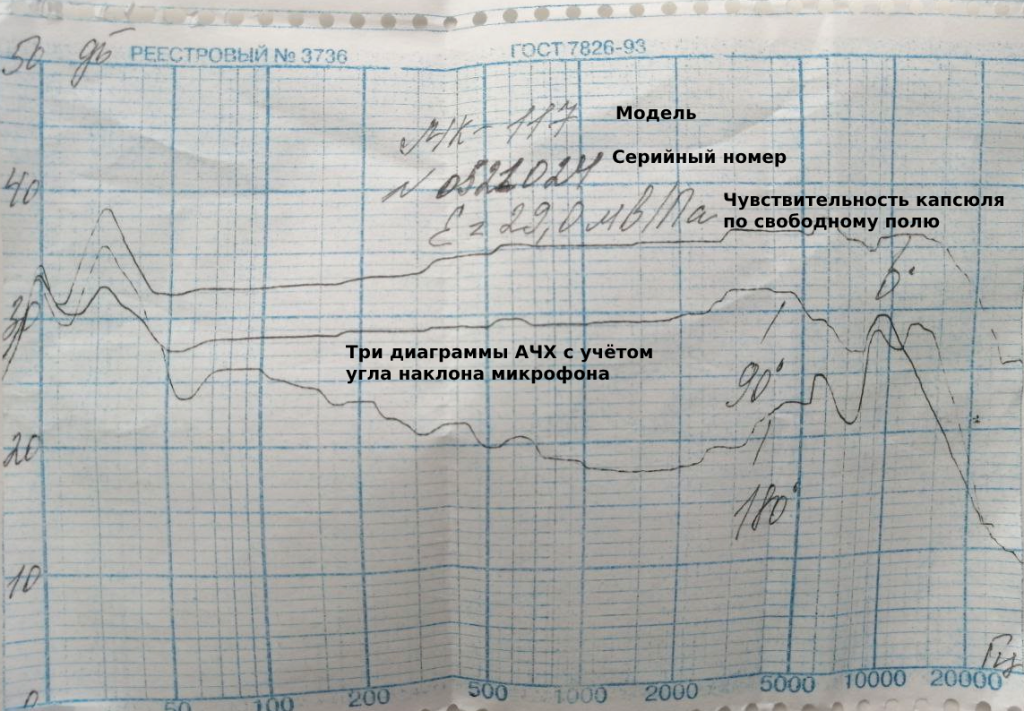 50 дб РЕЕСТРОВЫЙ № 3736 ГОСТ 7826-93
МК-117 Модель
N 0521024 Серийный номер
40
E = 29,0 мВ/Па Чувствительность капсюля
по свободному полю
0°
30
Три диаграммы АЧХ с учётом
угла наклона микрофона
90°
20
180°
10
Гц
0 50 100 200 500 1000 2000 5000 10000 20000